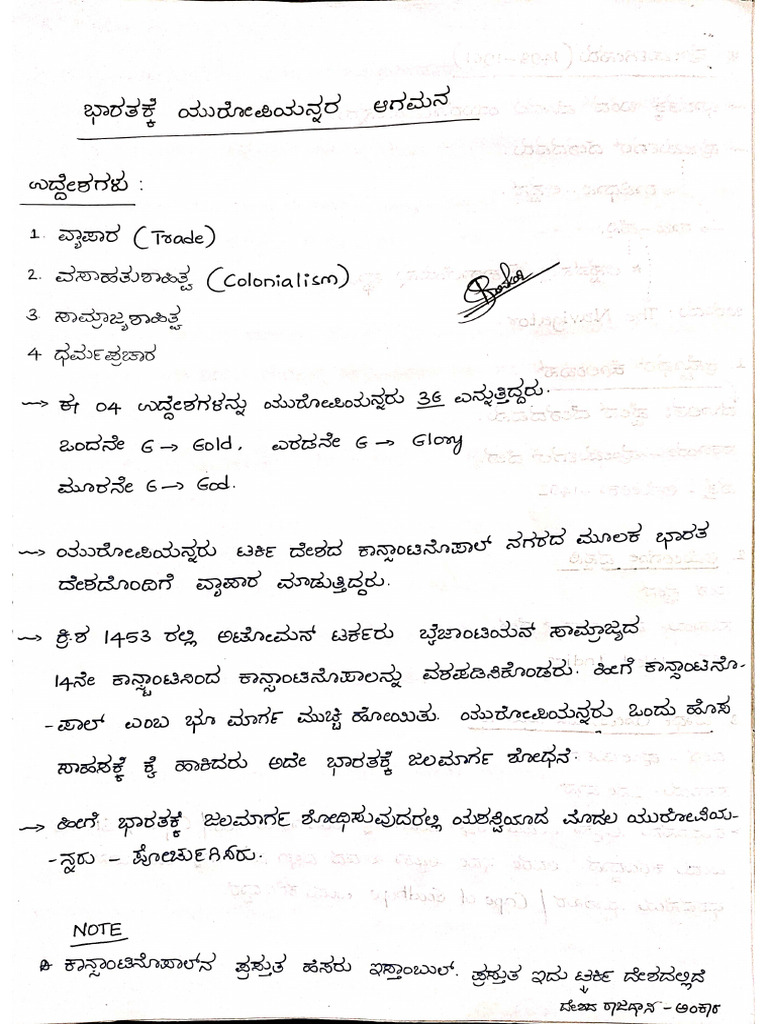 ಭಾರತಕ್ಕೆ ಯುರೋಪಿಯನ್ನರ ಆಗಮನ
ಉದ್ದೇಶಗಳು :
1. ವ್ಯಾಪಾರ (Trade)
2. ವಸಾಹತುಶಾಹಿತ್ವ (Colonialism)
3. ಸಾಮ್ರಾಜ್ಯಶಾಹಿತ್ವ
4 ಧರ್ಮಪ್ರಚಾರ
→ ಈ 04 ಉದ್ದೇಶಗಳನ್ನು ಯುರೋಪಿಯನ್ನರು 3G ಎನ್ನುತ್ತಿದ್ದರು.
ಒಂದನೇ G → Gold, ಎರಡನೇ G → Glory
ಮೂರನೇ G → God.
→ ಯುರೋಪಿಯನ್ನರು ಟರ್ಕಿ ದೇಶದ ಕಾನ್ಸಾಂಟಿನೊಪಾಲ್ ನಗರದ ಮೂಲಕ ಭಾರತ
ದೇಶದೊಂದಿಗೆ ವ್ಯಾಪಾರ ಮಾಡುತ್ತಿದ್ದರು.
→ ಕ್ರಿ.ಶ 1453 ರಲ್ಲಿ ಅಟೋಮನ್ ಟರ್ಕರು ಬೈಜಾಂಟಿಯನ್ ಸಾಮ್ರಾಜ್ಯದ
14ನೇ ಕಾನ್ಸ್ಟಾಂಟಿನಿಂದ ಕಾನ್ಸಾಂಟಿನೊಪಾಲನ್ನು ವಶಪಡಿಸಿಕೊಂಡರು. ಹೀಗೆ ಕಾನ್ಸಾಂಟಿನೊ-
-ಪಾಲ್ ಎಂಬ ಭೂ ಮಾರ್ಗ ಮುಚ್ಚಿ ಹೋಯಿತು. ಯುರೋಪಿಯನ್ನರು ಒಂದು ಹೊಸ
ಸಾಹಸಕ್ಕೆ ಕೈ ಹಾಕಿದರು ಅದೇ ಭಾರತಕ್ಕೆ ಜಲಮಾರ್ಗ ಶೋಧನೆ.
→ ಹೀಗೆ ಭಾರತಕ್ಕೆ ಜಲಮಾರ್ಗ ಶೋಧಿಸುವುದರಲ್ಲಿ ಯಶಸ್ವಿಯಾದ ಮೊದಲ ಯುರೋಪಿಯ-
-ನ್ನರು – ಪೋರ್ಚುಗೀಸರು.
NOTE
ಕಾನ್ಸಾಂಟಿನೊಪಾಲ್‌ನ ಪ್ರಸ್ತುತ ಹೆಸರು ಇಸ್ತಾಂಬುಲ್. ಪ್ರಸ್ತುತ ಇದು ಟರ್ಕಿ ದೇಶದಲ್ಲಿದೆ
ದೇಶದ ರಾಜಧಾನಿ – ಅಂಕಾರ